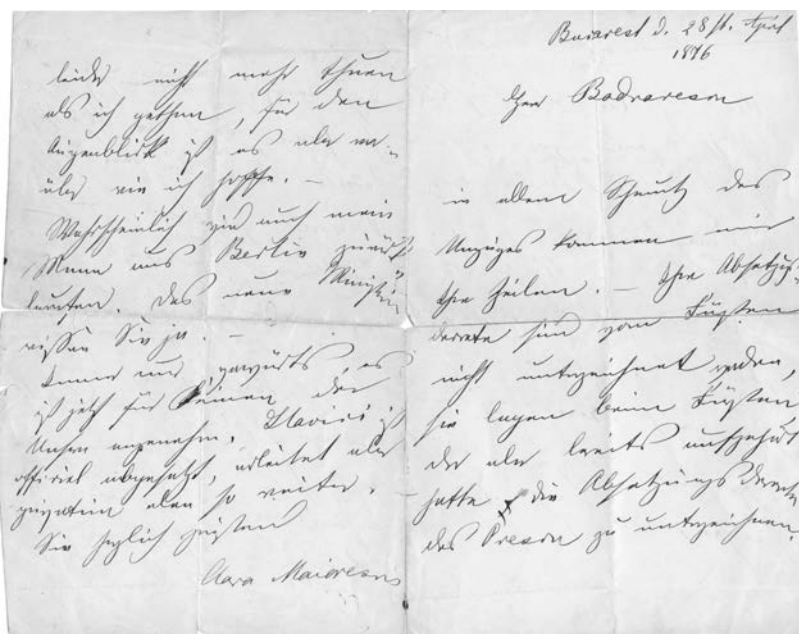 Bucarest d. 28 st. April
1876
Herr Bodnarescu
in allem Schmutz des
Umzuges kommen mir
Ihre Zeilen. — Ihre Absetzungs-
decrete sind vom Fürsten
nicht unterzeichnet worden,
sie lagen beim Fürsten
der aber bereits aufgehört
hatte die Absetzungsdecrete
des Precon zu unterzeichnen.
leider nicht mehr thuen
als ich gethan, für den
Augenblick ist es aber
wie ich hoffe. —
Wahrscheinlich wird auch mein
Mann aus Berlin zurück
berufen. Das neue Ministerium
wissen Sie ja. —
Immer nur vorwärts, es
ist jetzt für Keinen der
Unsern angenehm. Slavici ist
officiel abgesetzt, arbeitet aber
privatim eben so weiter. —
Sie herzlich grüssend
Clara Maiorescu